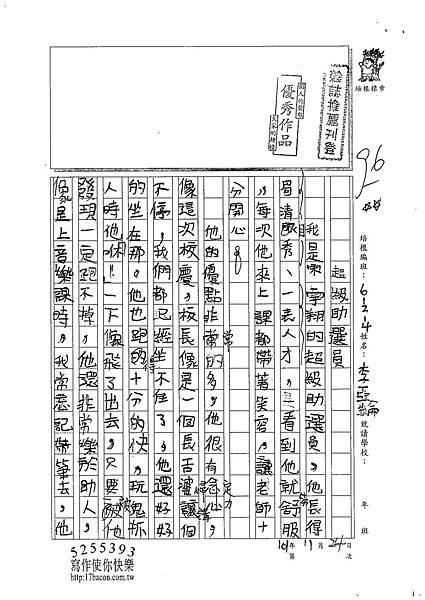 雜誌推薦刊登
優秀作品
培根標章
96
培根編班：6 2 4 姓名：李亞綸 就讀學校： 年 班
101年11月24日 第 次
超級助選員
我是宇翔的超級助選員，他長得
眉清目秀、一表人才，只看到他就舒服
，每次他來上課都帶著笑容，讓老師十
分開心。
他的優點非常的多，他很有
像這次校慶，校長像是一個長舌婆講個
不停，我們都已經坐不住了，他還好好
的坐在那。他也跑得十分的快，玩鬼抓
人時他咻！一下像飛了出去，只要被他
發現一定跑不掉，他還非常樂於助人，
像是上音樂課時，我常忘記帶筆去，他
5255393
寫作使你快樂
http://17bacon.com.tw